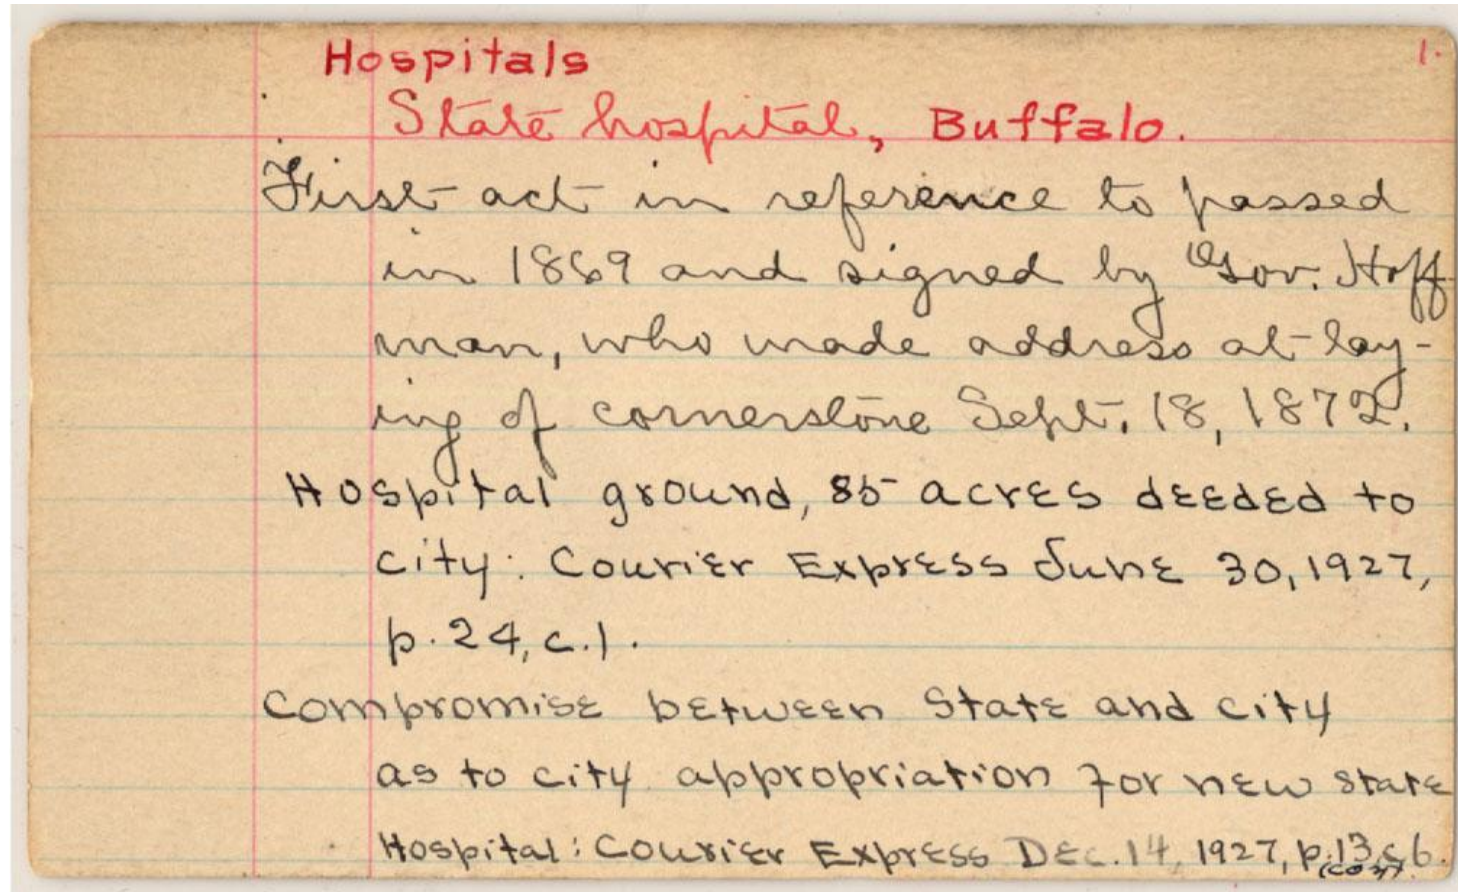 Hospitals 1.
State hospital, Buffalo.
First act in reference to passed
in 1869 and signed by Gov. Hoff
man, who made address at lay-
ing of cornerstone Sept. 18, 1872.
Hospital ground, 85 acres deeded to
city: Courier Express June 30, 1927,
p. 24, c. 1.
Compromise between State and city
as to city appropriation for new State
Hospital: Courier Express Dec. 14, 1927, p. 13, c. 6.